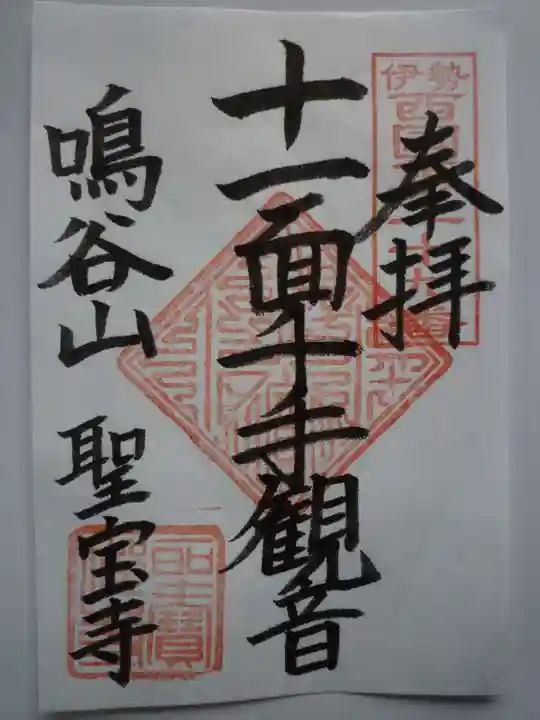 奉拝
伊勢
十一面千手観音
鳴谷山 聖宝寺